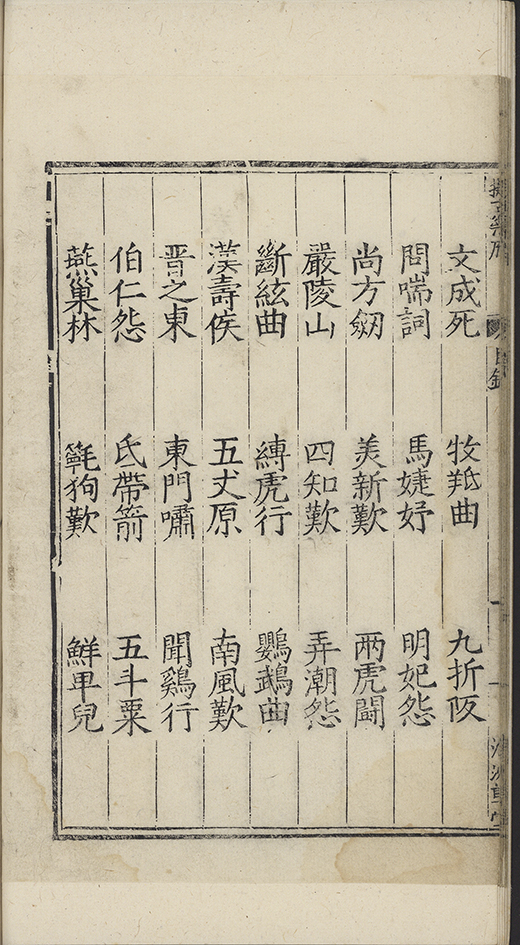 擬古樂府 目錄
文成死 牧羝曲 九折阪
問喘詞 馬婕妤 明妃怨
尚方劒 美新歎 兩虎鬪
嚴陵山 四知歎 弄潮怨
斷絃曲 縛虎行 鸚鵡曲
漢壽侯 五丈原 南風歎
晉之東 東門嘯 聞鷄行
伯仁怨 氐帶箭 五斗粟
燕巢林 狗歎 鮮卑兒